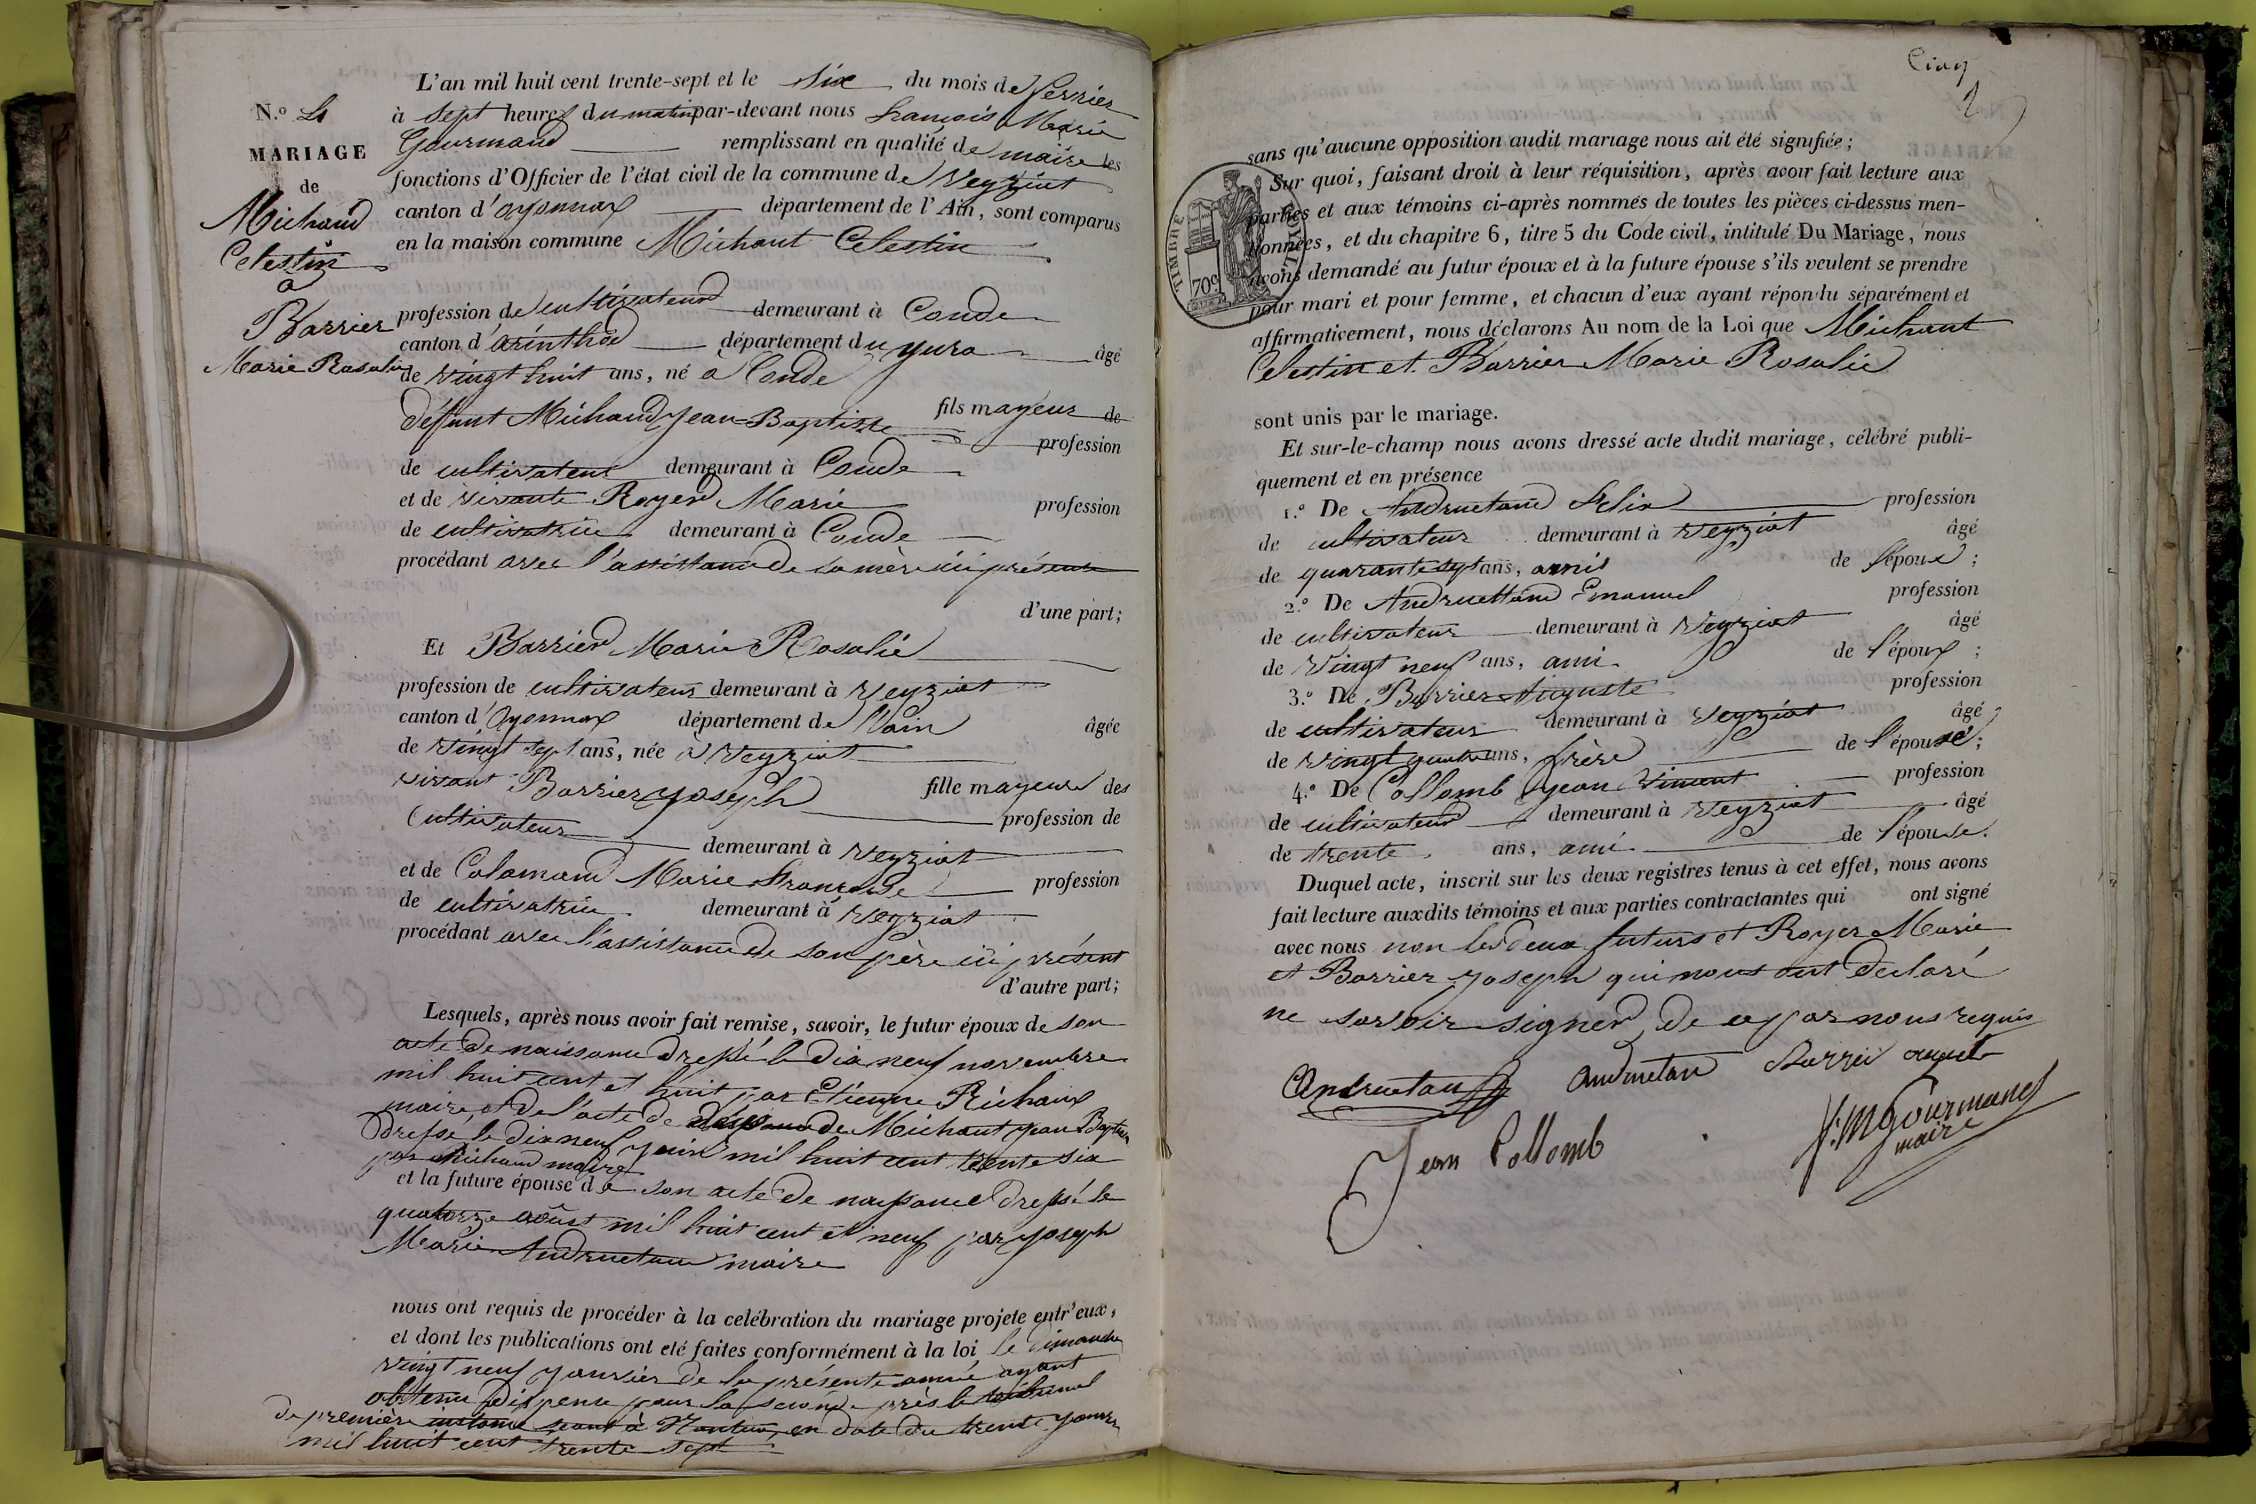 L'an mil huit cent trente-sept et le six du mois de fevrier
N.º 4
à sept heures du matin par-devant nous françois Marie
Gourmand remplissant en qualité de maire les
MARIAGE
fonctions d'Officier de l'état civil de la commune de Veyziat
de
canton d'oyonnax département de l'Ain, sont comparus
Michaud
en la maison commune Michaut Celestin
Celestin
a
profession de cultivateur demeurant à Conde
Barrier
canton d'arinthod département du yura âgé
Marie Rosalie
de vingt huit ans, né à Conde
fils mayeur de
défunt Michaud jean-Baptiste profession
de cultivateur demeurant à Conde
et de vivante Royer Marie profession
de cultivatrice demeurant à Conde
procédant avec l'assistance de sa mère ici présente
d'une part;
Et Barrier Marie Rosalie
profession de cultivateur demeurant à Veyziat
canton d'Oyonnax département de l'ain âgée
de vingt sept ans, née à Veyziat
fille mayeure des
vivant Barrier yoseph profession de
Cultivateur demeurant à Veyziat
et de Colomand Marie françoise profession
de cultivatrice demeurant à Veyziat
procédant avec l'assistance de son père ici présent
d'autre part;
Lesquels, après nous avoir fait remise, savoir, le futur époux de son
acte de naissance dressé le dix neuf novembre
mil huit cent et huit par Etienne Richaux
maire, et de l'acte de de Michaut yean Baptiste
dressé le dix neuf juin mil huit cent trente six
par Michaud maire
et la future épouse de son acte de naissance dressé le
quatorze août mil huit cent et neuf par yoseph
Marie Andruetan maire
nous ont requis de procéder à la celébration du mariage projete entr'eux,
et dont les publications ont eté faites conformément à la loi le dimanche
vingt neuf yanvier de la présente année ayant
obtenu dispense pour la seconde près le tribunal
de première instance séant à Nantua, en date du trente yanvier
mil huit cent trente sept
Cinq
2
sans qu'aucune opposition audit mariage nous ait été signifiée;
Sur quoi, faisant droit à leur réquisition, après avoir fait lecture aux
parties et aux témoins ci-après nommés de toutes les pièces ci-dessus men-
tionnées, et du chapitre 6, titre 5 du Code civil, intitulé Du Mariage, nous
avons demandé au futur époux et à la future épouse s'ils veulent se prendre
pour mari et pour femme, et chacun d'eux ayant répondu séparément et
TIMBRE ROYAL
70c
affirmativement, nous déclarons Au nom de la Loi que Michaut
Celestin et Barrier Marie Rosalie
sont unis par le mariage.
Et sur-le-champ nous avons dressé acte dudit mariage, célébré publi-
quement et en présence
1.º De Andruetand Felix profession
de cultivateur demeurant à Veyziat âgé
de quarante sept ans, amis de l'époux;
2.º De Andruettand Emanuel profession
de cultivateur demeurant à Veyziat âgé
de vingt neuf ans, ami de l'époux;
3.º De Barrier Auguste profession
de cultivateur demeurant à Veyziat âgé
de vingt quatre ans, frère de l'épouse;
4.º De Collomb yean Vincent profession
de cultivateur demeurant à Veyziat âgé
de trente ans, ami de l'épouse.
Duquel acte, inscrit sur les deux registres tenus à cet effet, nous avons
fait lecture auxdits témoins et aux parties contractantes qui ont signé
avec nous non les deux futurs et Royer Marie
et Barrier yoseph qui nous ont declaré
ne savoir signer de ce par nous requis
Andruetan Andruetan Barrie
Jean Collomb
f. M Gourmand
maire